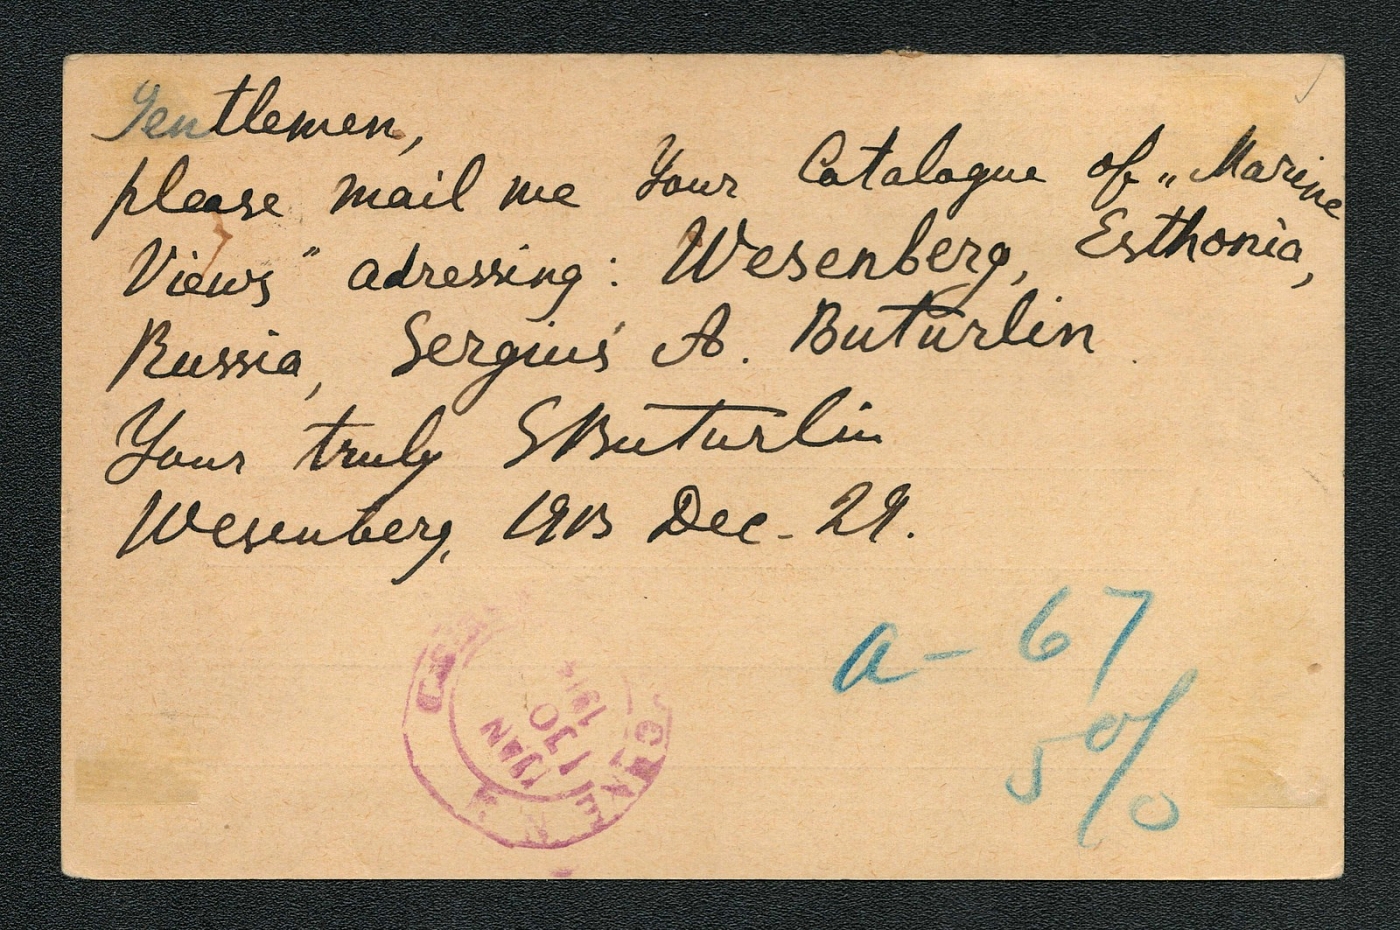 Gentlemen,
please mail me Your Catalogue of „Marine
Views" adressing: Wesenberg, Esthonia,
Russia, Sergius A. Buturlin.
Your truly SButurlin
Wesenberg, 1913 Dec - 29.
a - 67
5%
JAN
1914